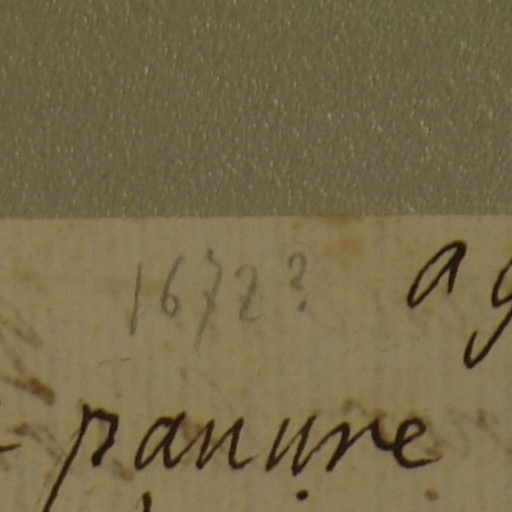 1672? a g
panure